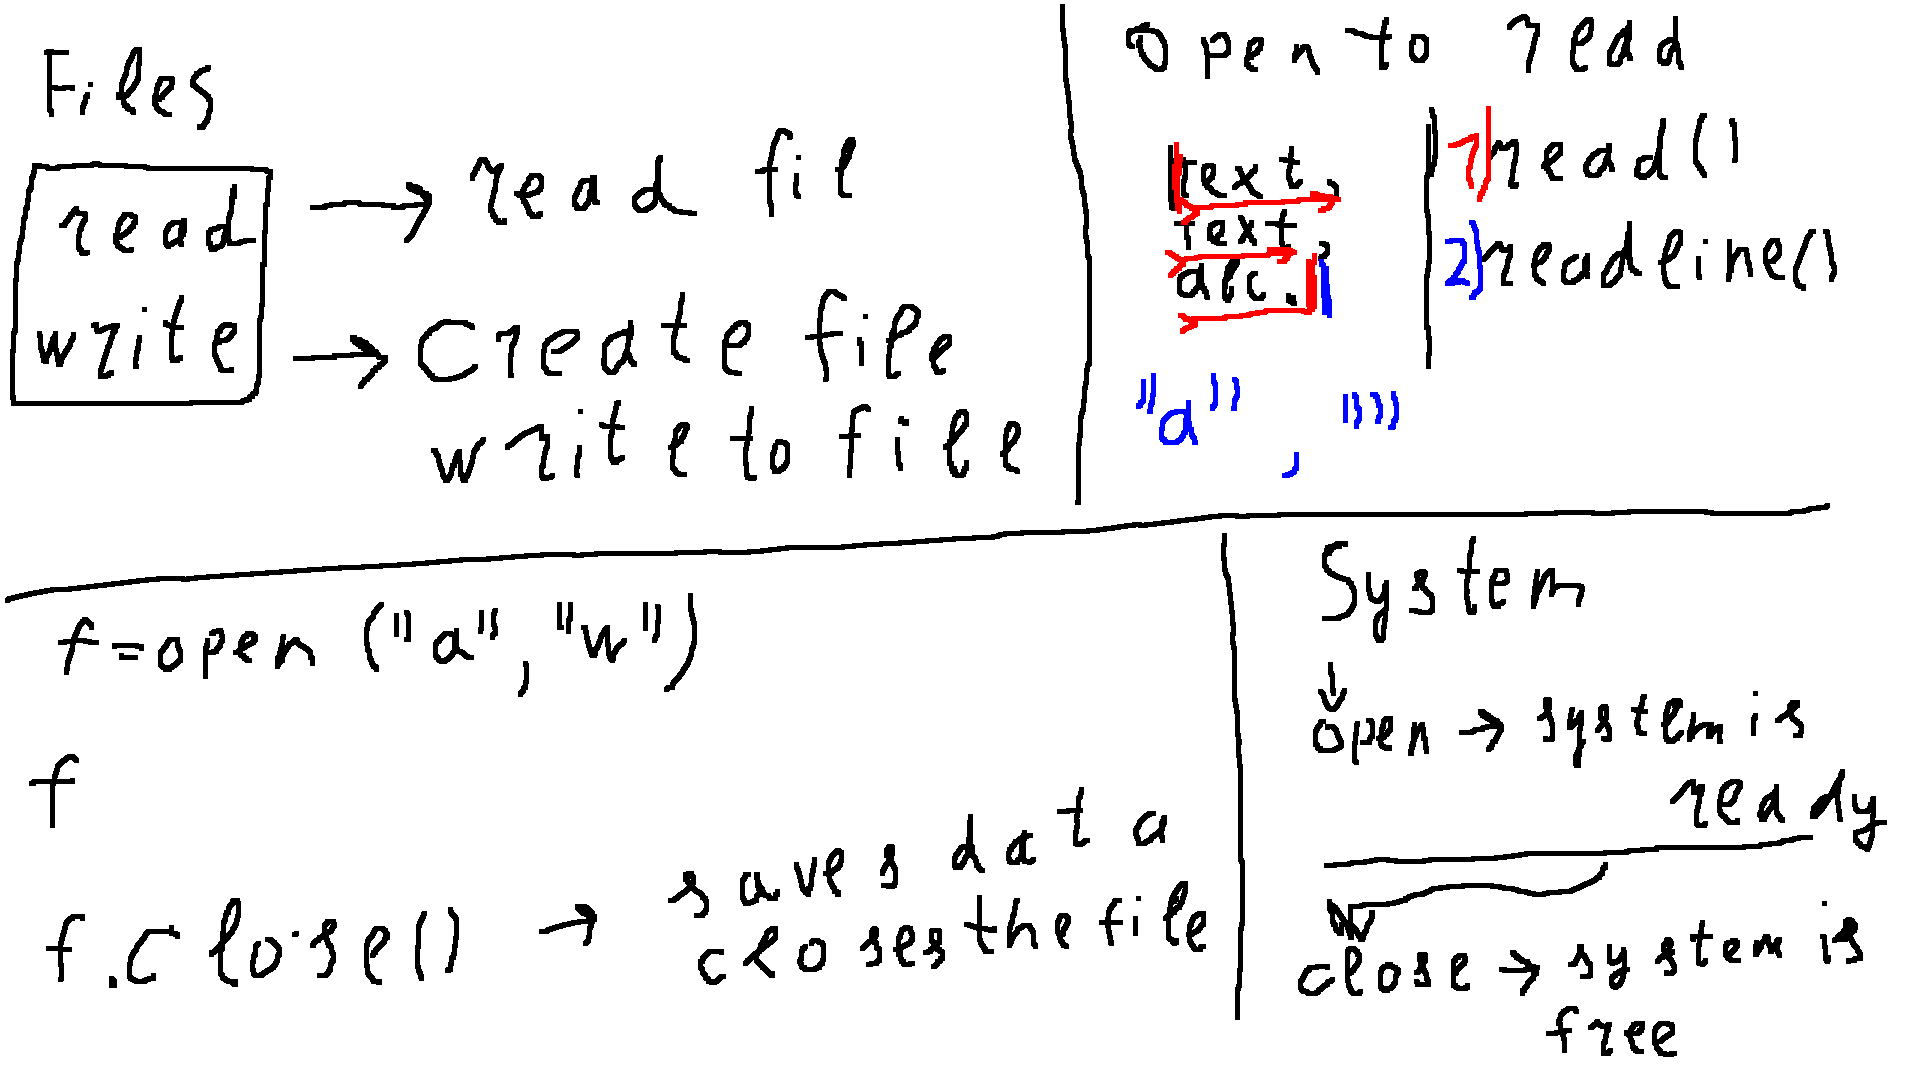 Files
read → read fil
write → Create file
write to file
open to read
text,
text,
abc.
1) read()
2) readline()
"a" , ""
f=open ("a", "w")
f
f.close() → saves data
closes the file
System
↓
open → system is
ready
close → system is
free